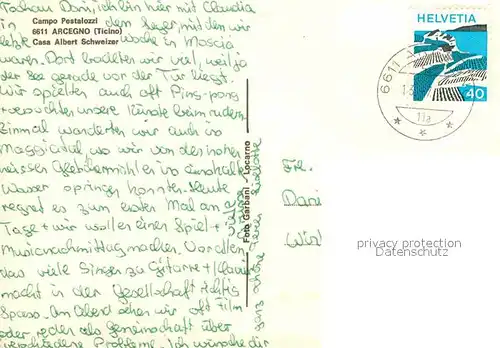 Tschau Dani, ich bin hier mit Claudia
Campo Pestalozzi
6611 ARCEGNO (Ticino)
Casa Albert Schweizer
in dem Lager, mit dem wir
letzte Woche in Moscia
waren. Dort badeten wir viel, weil ja
der See gerade vor der Tür liegt.
Wir spielten auch oft Ping-pong
+ versuchten unsere Künste beim rudern.
Einmal wanderten wir auch ins
Maggiatal, wo wir von den hohen
weissen Felsen ins eiskalte
Wasser springen konnten. Heute
regnet es zum ersten Mal am
Tage + wir wollen einen Spiel +
Musiknachmittag machen. Vor allem
das viele Singen zu Gitarre + Klavier
macht in der Gesellschaft richtig
Spass. Am Abend sehen wir oft Film
oder reden als Gemeinschaft über
verschiedene Probleme. Ich wünsche dir
ganz schöne Ferien
viele
Foto Garbani - Locarno
HELVETIA
40
6611
11a
Frl.
Dani
privacy protection
Datenschutz